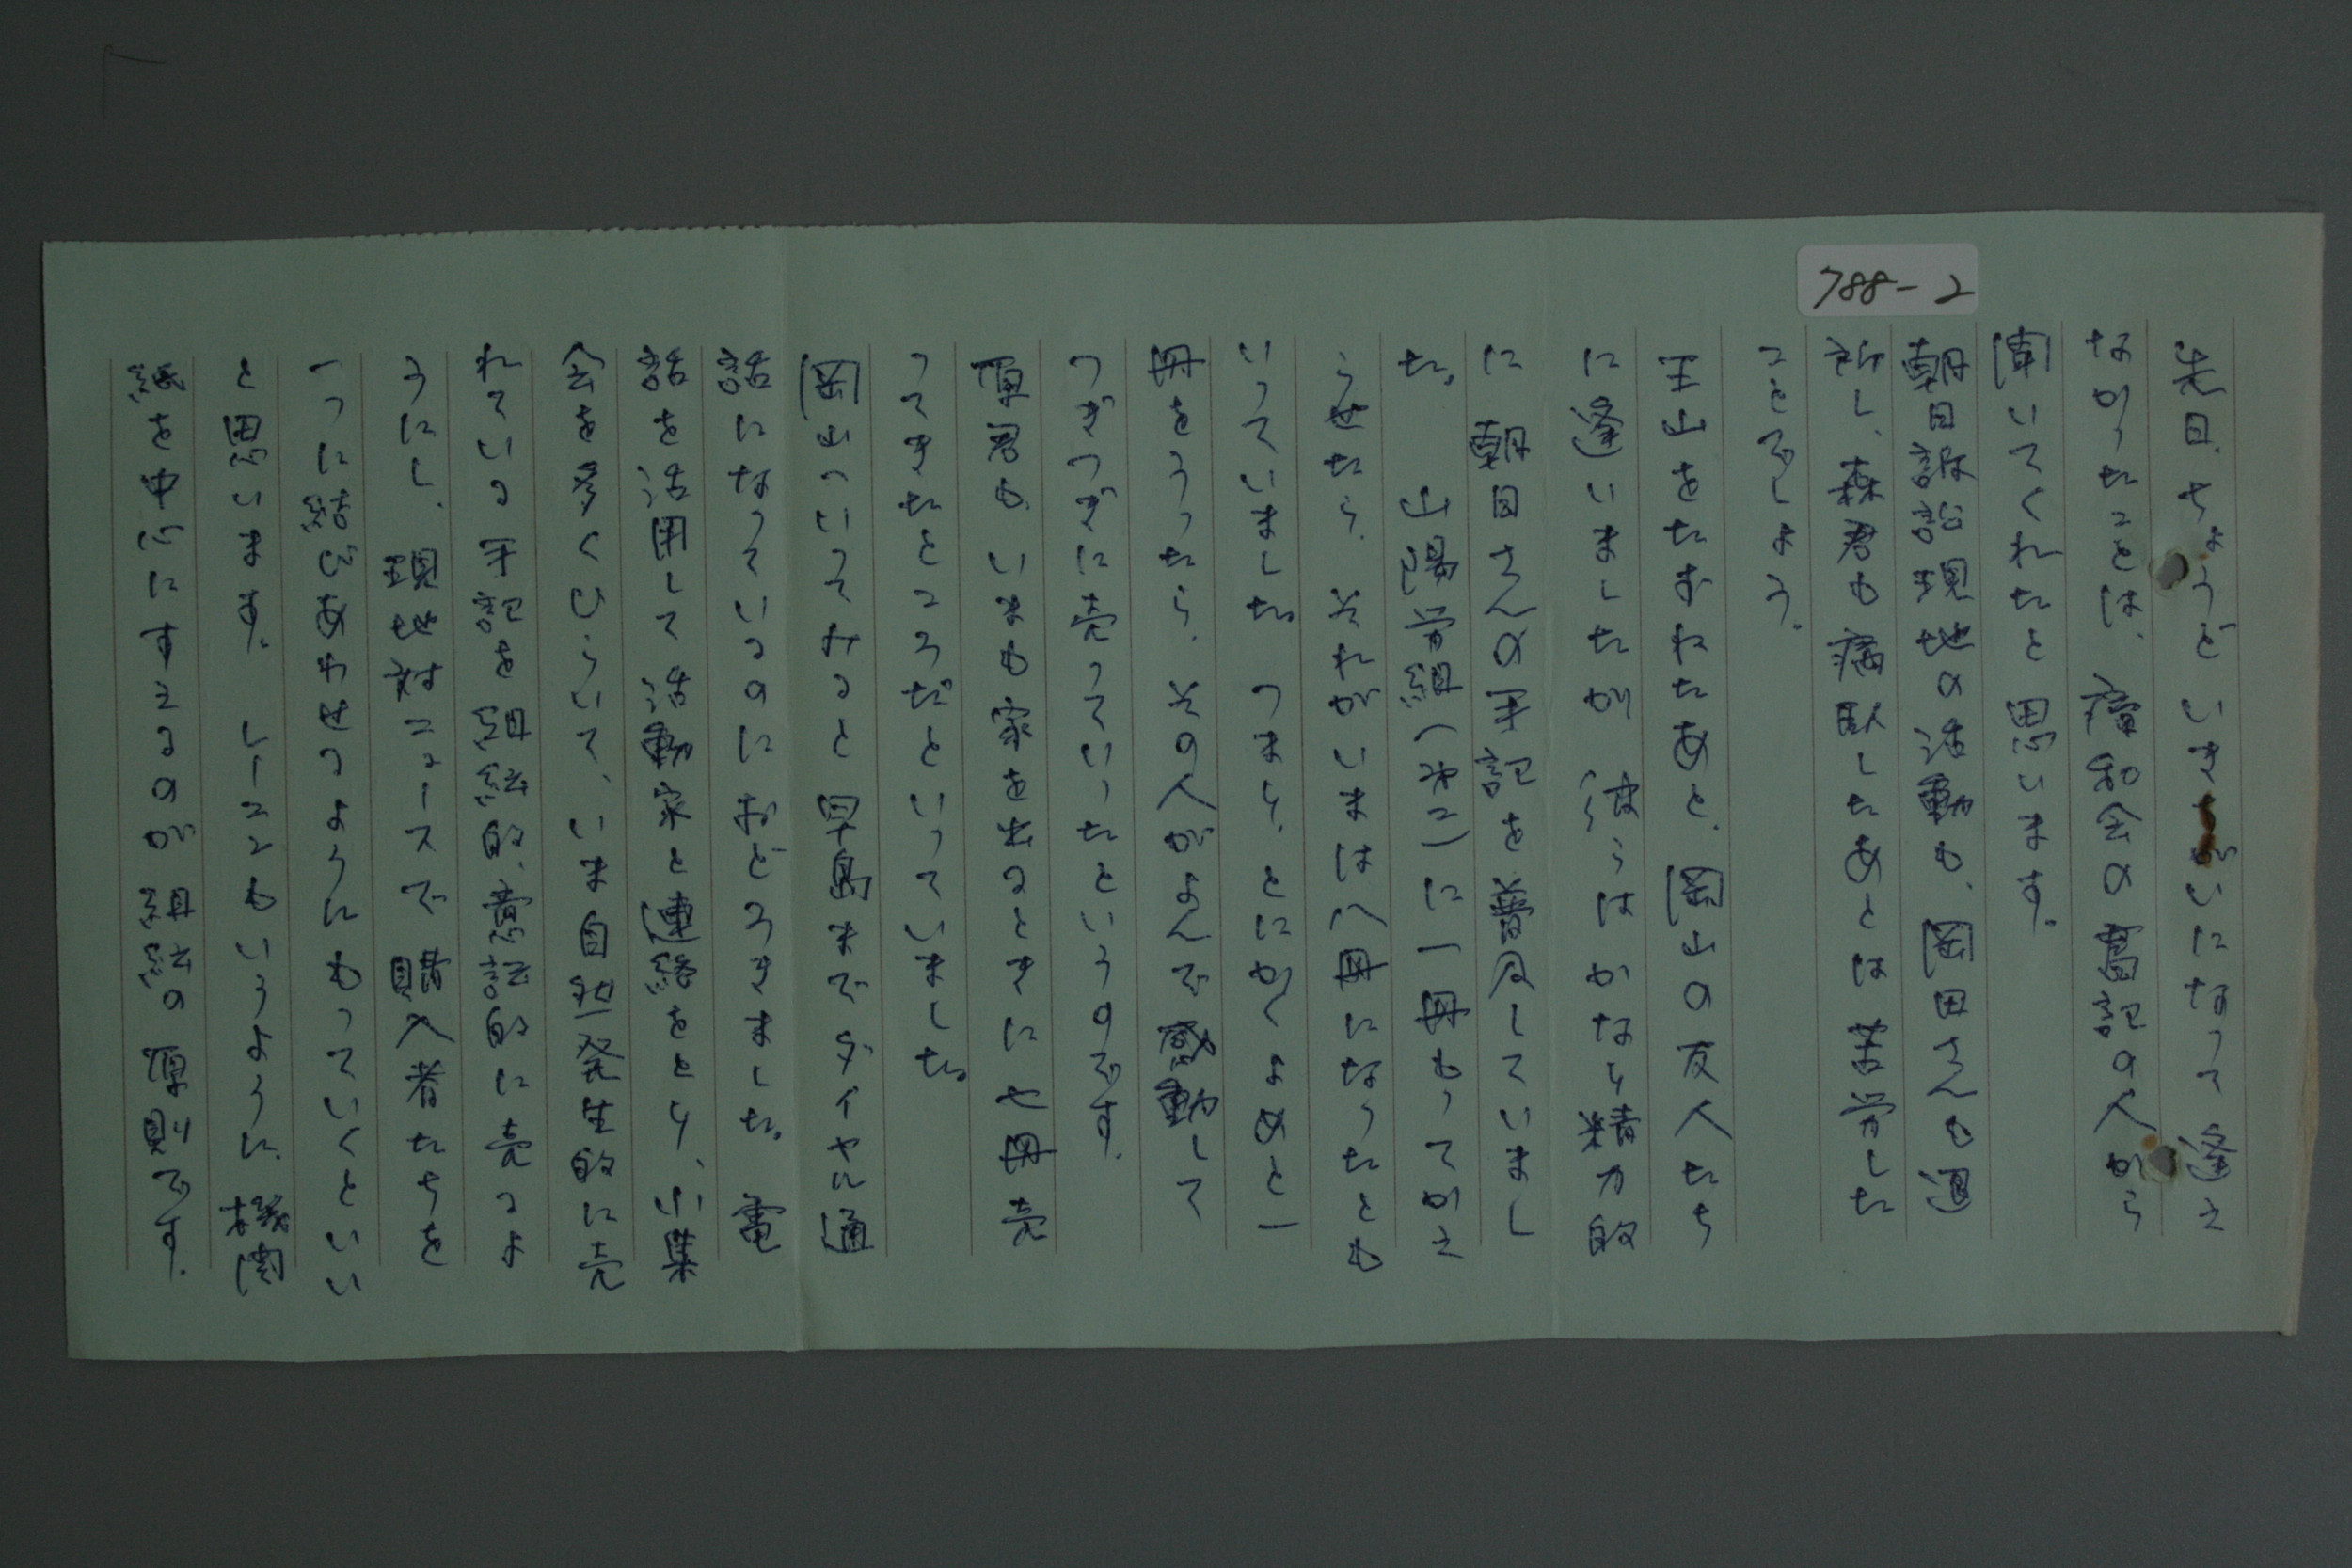 788-2
先日、ちょうどいきちがいになって逢え
なかったことは、療和会の書記の人から
聞いてくれたと思います。
朝日訴訟現地の活動も、岡田さんも通
祈し、森君も病臥したあとは苦労した
ことでしょう。
玉山をたずねたあと、岡山の友人たち
に逢いましたが、彼らはかなり精力的
に朝日さんの手記を普及していまし
た。 山陽労組(水工)に一冊もってかえ
らせたら、それがいまは八冊になったとも
いっていました。つまり、とにかくよめと一
冊をうったら、その人がよんで感動して
つぎつぎに売っていったというのです。
原君も、いまも家を出るときに七冊売
ってきたところだといっていました。
岡山についてみると早島までダイヤル通
話になっているのにおどろきました。電
話を活用して活動家と連絡をとり、小集
会を多くひらいて、いま自然発生的に売
れている手記を組織的、意識的に売るよ
うにし、現地対ニュースで購入者たちを
一つに結びあわせるようにもっていくといい
と思います。レーニンもいうように、機関
紙を中心にすえるのが組織の原則です。